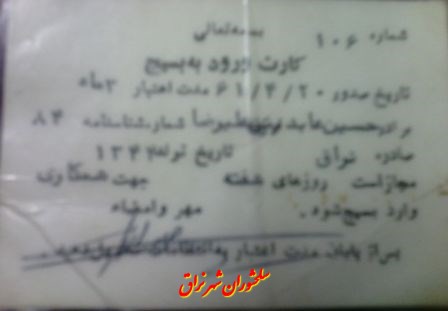 بسمه تعالی
شماره ۱۰۶
کارت ورود به بسیج
تاریخ صدور ۶۱/۴/۲۰ مدت اعتبار ۳ ماه
برادر حسین عابدینی علیرضا شماره شناسنامه ۸۴
صادره نراق تاریخ تولد ۱۳۴۴
مجاز است روزهای هفته جهت همکاری
وارد بسیج شود. مهر و امضاء
پس از پایان مدت اعتبار به انتظامات تحویل دهید.
سلحشوران شهر نراق